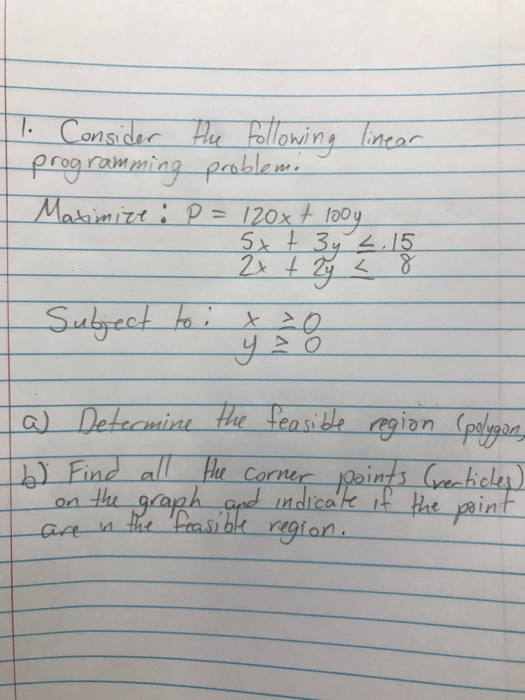 1. Consider the following linear
programming problem.
Maximize: P = 120x + 100y
5x + 3y ≤ .15
2x + 2y ≤ 8
Subject to: x ≥ 0
y ≥ 0
a) Determine the feasible region (polygon,
b) Find all the corner points (verticles)
on the graph and indicate if the point
are in the feasible region.